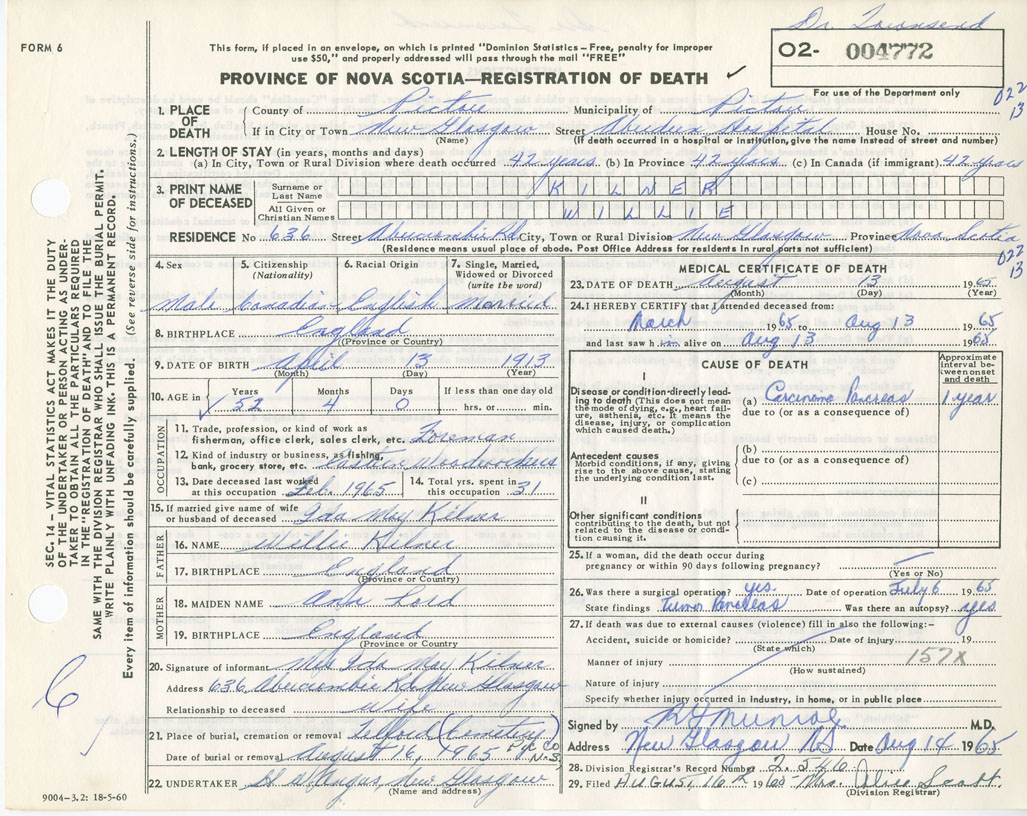 Dr. Townsend
FORM 6
This form, if placed in an envelope, on which is printed "Dominion Statistics – Free, penalty for improper
use $50," and properly addressed will pass through the mail "FREE"
O2- 004772
PROVINCE OF NOVA SCOTIA—REGISTRATION OF DEATH ✓
For use of the Department only
022
13
1. PLACE OF DEATH
County of Pictou Municipality of Pictou
If in City or Town New Glasgow Street Aberdeen Hospital House No.
(Name) (If death occurred in a hospital or institution, give the name instead of street and number)
2. LENGTH OF STAY (in years, months and days)
(a) In City, Town or Rural Division where death occurred 42 years (b) In Province 42 years (c) In Canada (if immigrant) 42 years
3. PRINT NAME OF DECEASED
Surname or Last Name KILNER
All Given or Christian Names WILLIE
RESIDENCE No 636 Street Abercrombie Rd City, Town or Rural Division New Glasgow Province Nova Scotia
(Residence means usual place of abode. Post Office Address for residents in rural parts not sufficient)
022
13
SEC. 14 – VITAL STATISTICS ACT MAKES IT THE DUTY
OF THE UNDERTAKER OR PERSON ACTING AS UNDER-
TAKER TO OBTAIN ALL THE PARTICULARS REQUIRED
IN THE "REGISTRATION OF DEATH" AND TO FILE THE
SAME WITH THE DIVISION REGISTRAR WHO SHALL ISSUE THE BURIAL PERMIT.
WRITE PLAINLY WITH UNFADING INK. THIS IS A PERMANENT RECORD.
Every item of information should be carefully supplied. (See reverse side for instructions.)
6
4. Sex
Male
5. Citizenship (Nationality)
Canadian
6. Racial Origin
English
7. Single, Married, Widowed or Divorced (write the word)
Married
8. BIRTHPLACE England
(Province or Country)
9. DATE OF BIRTH April 13 1913
(Month) (Day) (Year)
10. AGE in Years Months Days If less than one day old
✓ 52 4 0 hrs. or min.
OCCUPATION
11. Trade, profession, or kind of work as
fisherman, office clerk, sales clerk, etc. Foreman
12. Kind of industry or business, as fishing,
bank, grocery store, etc. Eastern Woodworkers
13. Date deceased last worked
at this occupation Feb. 1965
14. Total yrs. spent in
this occupation 31
15. If married give name of wife
or husband of deceased Ida May Kilner
FATHER
16. NAME Willie Kilner
17. BIRTHPLACE England
(Province or Country)
MOTHER
18. MAIDEN NAME Ann Lord
19. BIRTHPLACE England
(Province or Country)
20. Signature of informant Mrs Ida May Kilner
Address 636 Abercrombie Rd New Glasgow
Relationship to deceased Wife
21. Place of burial, cremation or removal Telford (Cemetery)
Date of burial or removal August 16, 1965 Pic Co N.S.
22. UNDERTAKER H W Angus New Glasgow
(Name and address)
9004–3.2: 18-5-60
MEDICAL CERTIFICATE OF DEATH
23. DATE OF DEATH August 13 1965
(Month) (Day) (Year)
24. I HEREBY CERTIFY that I attended deceased from:
March 1965 to Aug 13 1965
and last saw him alive on Aug 13 1965
CAUSE OF DEATH
Approximate interval between onset and death
I
Disease or condition directly leading to death (This does not mean the mode of dying, e.g., heart failure, asthenia, etc. It means the disease, injury, or complication which caused death.)
(a) Carcinoma Pancreas 1 year
due to (or as a consequence of)
Antecedent causes
Morbid conditions, if any, giving rise to the above cause, stating the underlying condition last.
(b)
due to (or as a consequence of)
(c)
II
Other significant conditions
contributing to the death, but not related to the disease or condition causing it.
25. If a woman, did the death occur during
pregnancy or within 90 days following pregnancy?
(Yes or No)
26. Was there a surgical operation? yes Date of operation July 6 1965
State findings Tumor Pancreas Was there an autopsy? yes
27. If death was due to external causes (violence) fill in also the following:–
Accident, suicide or homicide? Date of injury 19
(State which)
Manner of injury 157X
(How sustained)
Nature of injury
Specify whether injury occurred in industry, in home, or in public place
Signed by M.D.
Address New Glasgow NS Date Aug 14 1965
28. Division Registrar's Record Number 2546
29. Filed AUGUST 16 1965 Mrs. Alice Scott.
(Division Registrar)